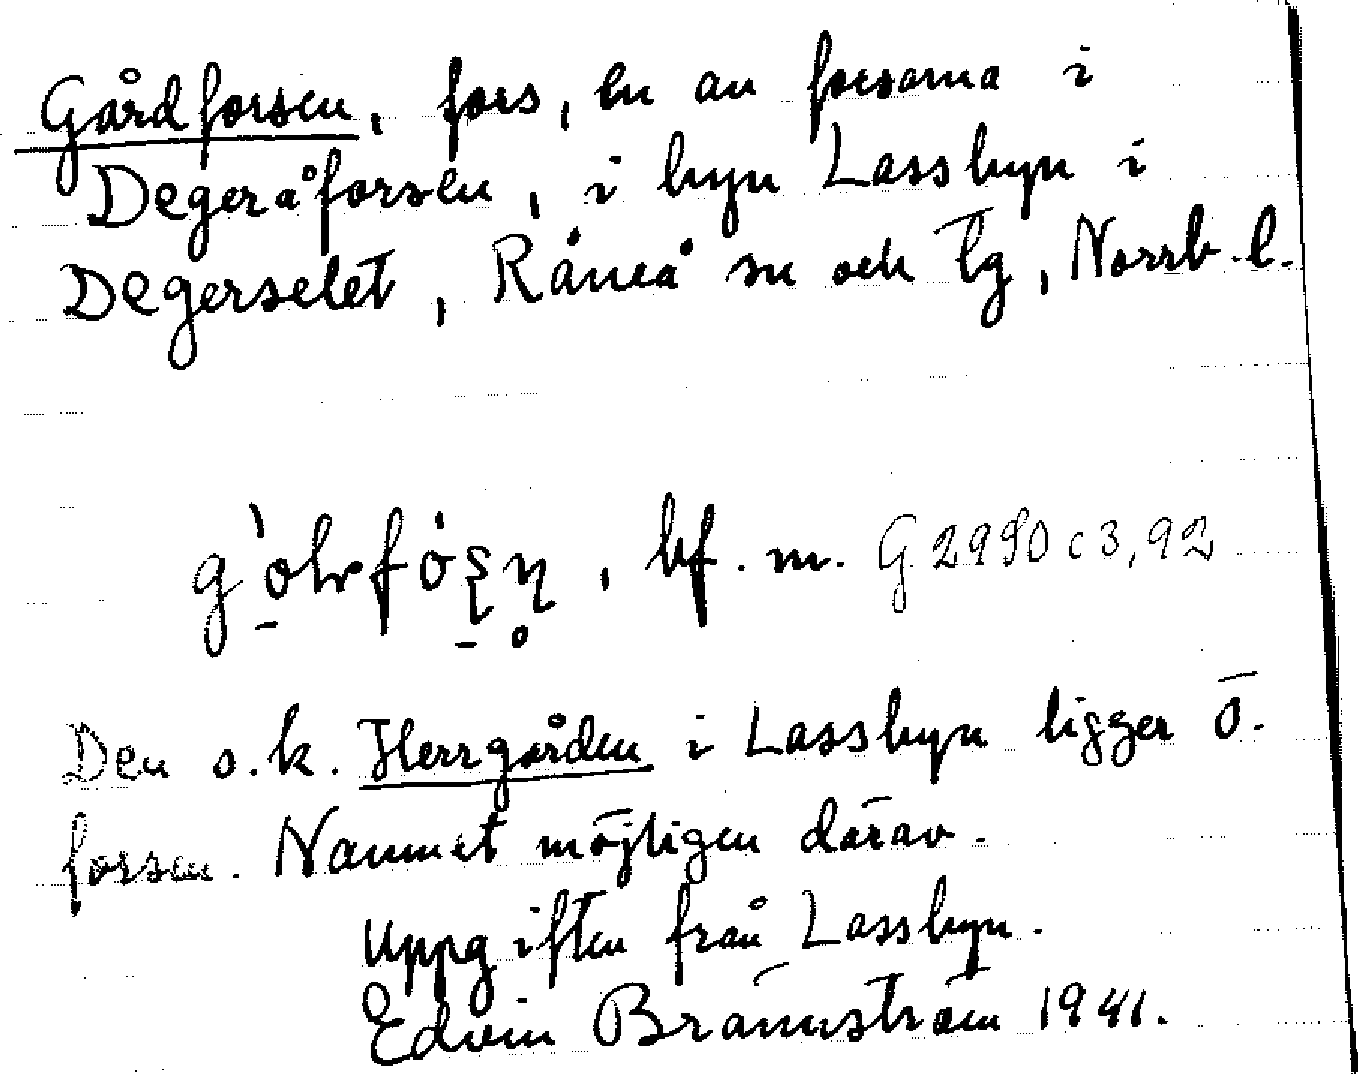 Gårdforsen, fors, en av forsarna i
Degeråforsen, i byn Lassbyn i
Degerselet, Råneå sn och tg, Norrb. l.
bf. m. G 2980 c 3, 92
Den s.k. Herrgården i Lassbyn ligger ö.
forsen. Namnet möjligen därav.
Uppgiften från Lassbyn.
Edvin Brännström 1941.